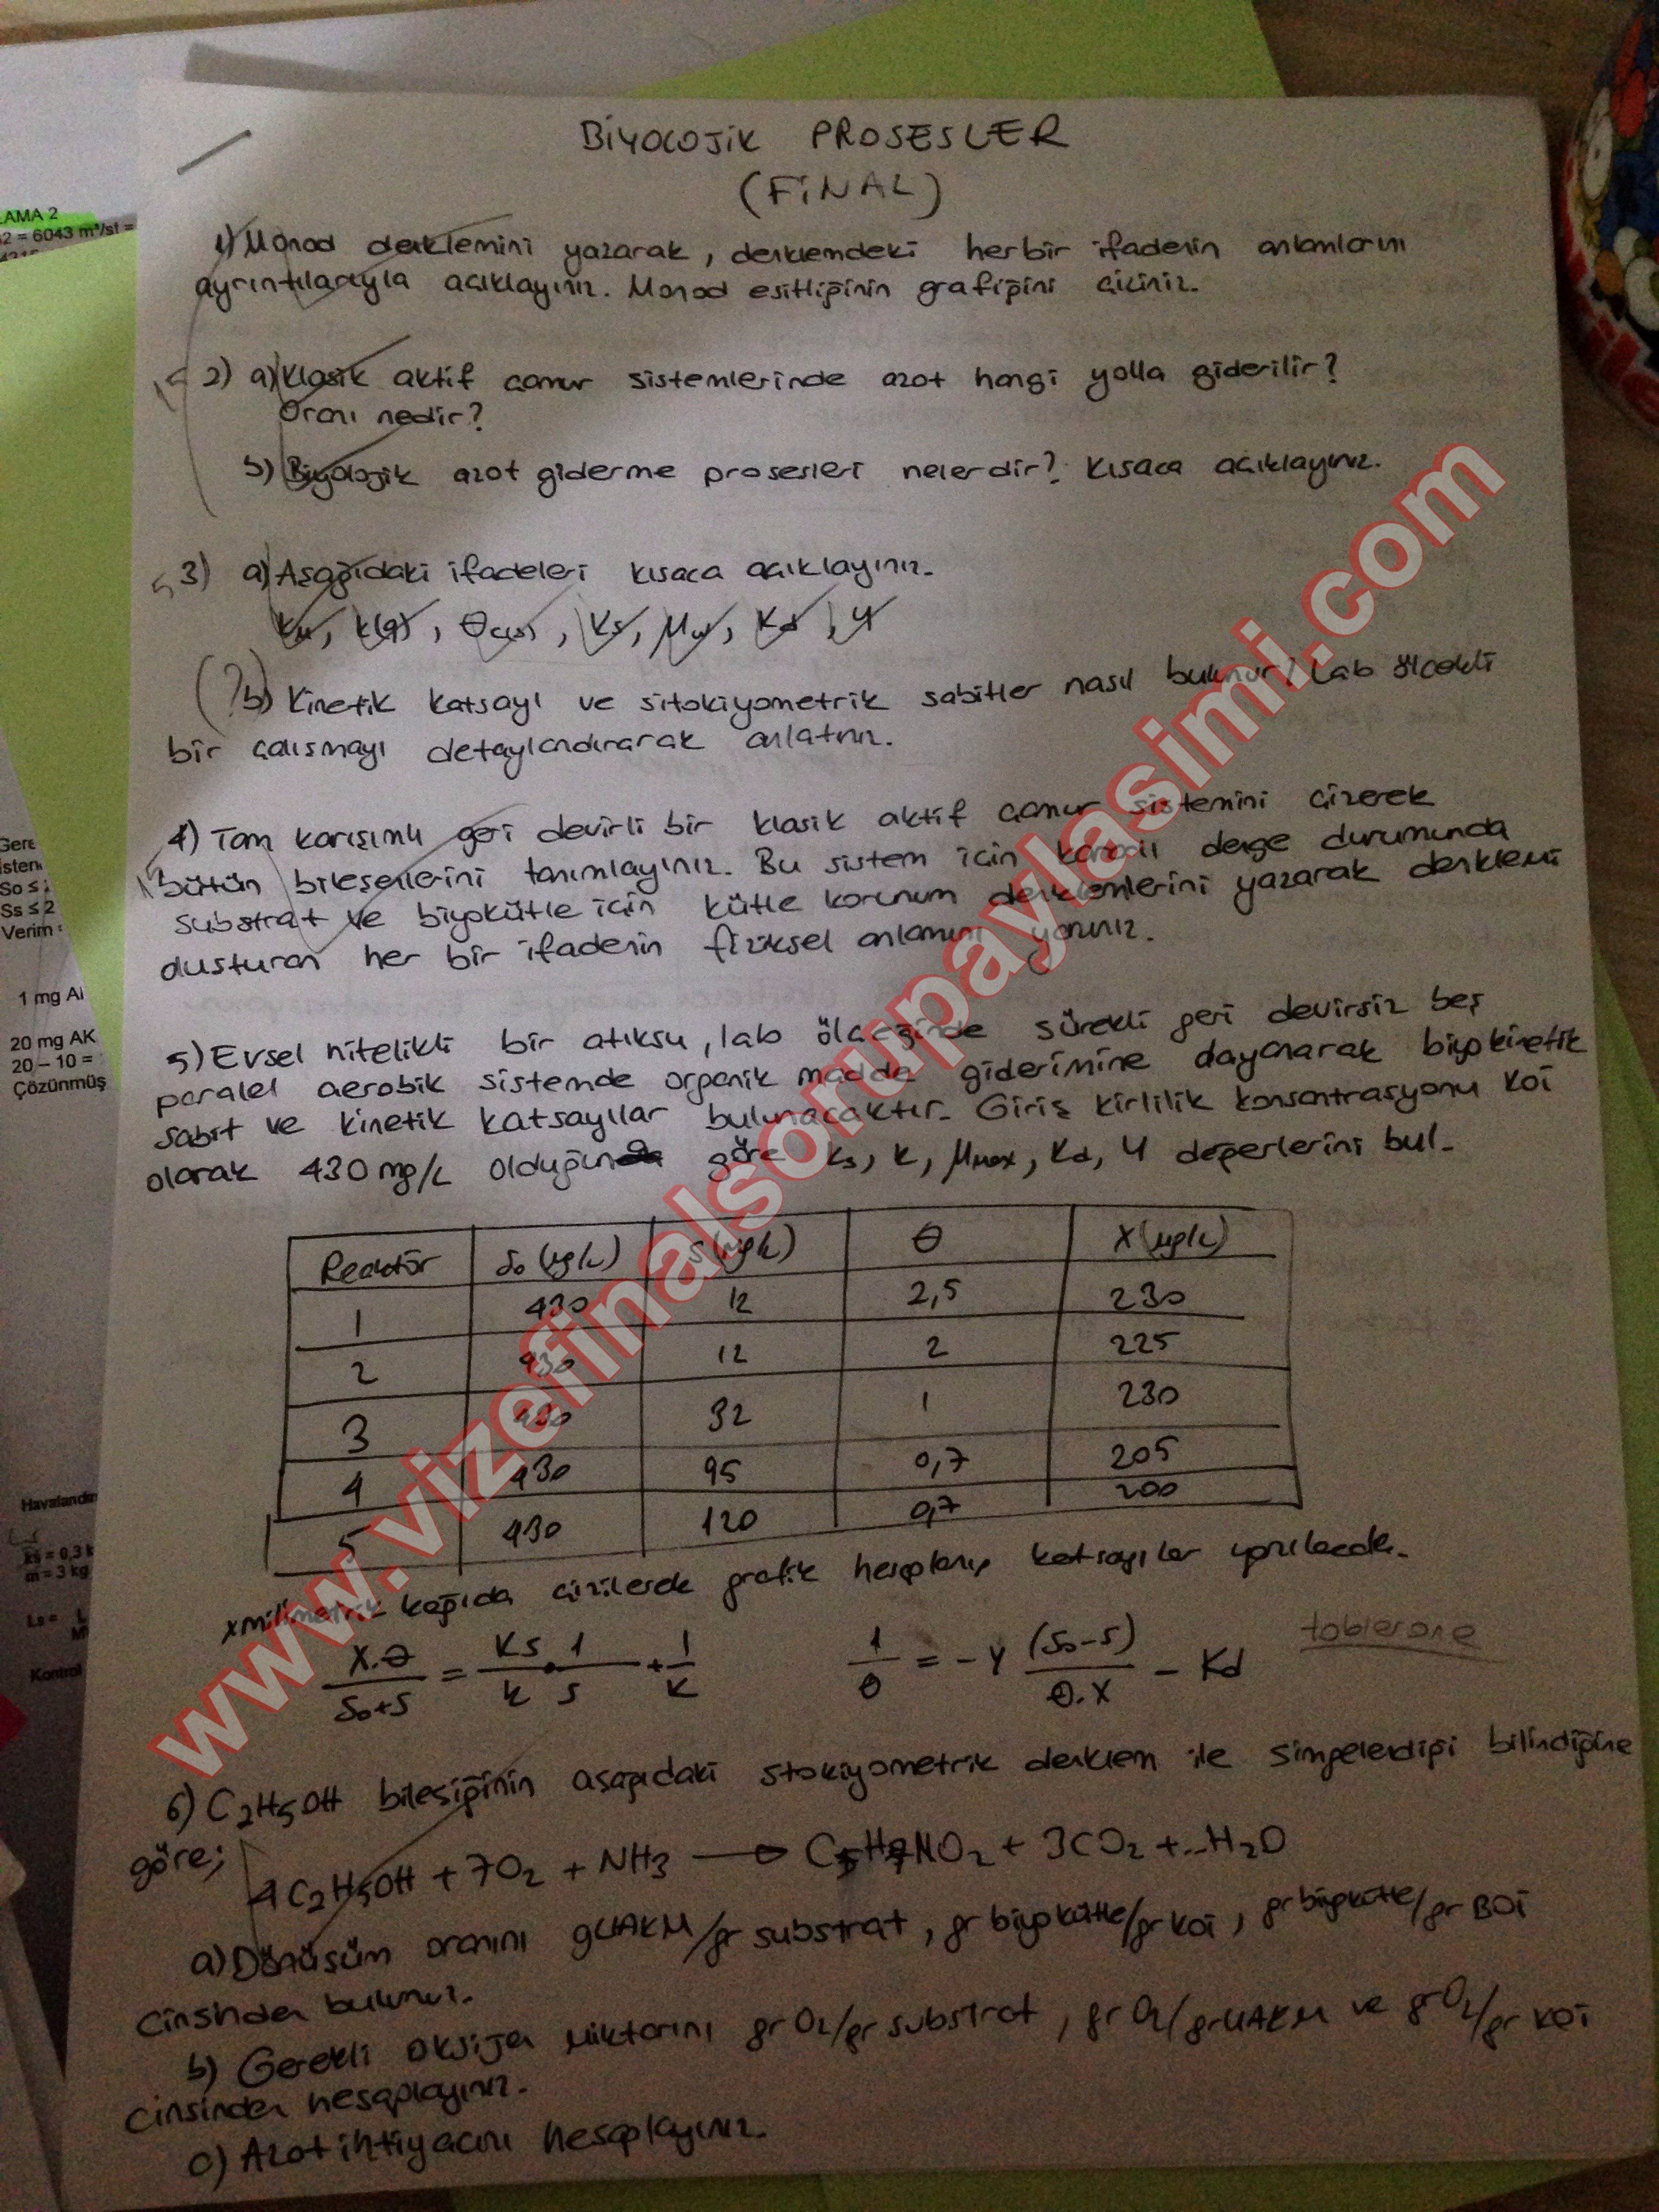 BİYOLOJİK PROSESLER
(FİNAL)
LAMA 2
2 = 6043 m³/st =
1) Monod denklemini yazarak, denklemdeki herbir ifadenin anlamlarını
ayrıntılarıyla açıklayınız. Monod eşitliğinin grafiğini çiziniz.
2) a) Klasik aktif çamur sistemlerinde azot hangi yolla giderilir?
Oranı nedir?
b) Biyolojik azot giderme prosesleri nelerdir? Kısaca açıklayınız.
3) a) Aşağıdaki ifadeleri kısaca açıklayınız.
k(q), Ks, Kd, Y
(?b) Kinetik katsayı ve sitokiyometrik sabitler nasıl bulunur? Lab ölçekli
bir çalışmayı detaylandırarak anlatınız.
4) Tam karışımlı geri devirli bir klasik aktif çamur sistemini çizerek
bütün bileşenlerini tanımlayınız. Bu sistem için kararlı denge durumunda
substrat ve biyokütle için kütle korunum denklemlerini yazarak denklemi
oluşturan her bir ifadenin fiziksel anlamını yazınız.
5) Evsel nitelikli bir atıksu, lab ölçeğinde sürekli geri devirsiz beş
paralel aerobik sistemde organik madde giderimine dayanarak biyokinetik
sabit ve kinetik katsayılar bulunacaktır. Giriş kirlilik konsantrasyonu KOİ
olarak 430 mg/L olduğuna göre Ks, k, μmax, Kd, Y değerlerini bul.
Reaktör So (mg/L) S (mg/L) θ X (mg/L)
1 430 12 2,5 230
2 430 12 2 225
3 430 32 1 230
4 430 95 0,7 205
5 430 120 0,7 200
x milimetrik kağıda çizilerek grafik hesaplanıp katsayılar yazılacak.
X.θ / So+S = Ks / k . 1 / S + 1 / k
1 / θ = - Y (So-S) / θ.X - Kd
toblerone
6) C₂H₅OH bileşiğinin aşağıdaki stokiyometrik denklem ile simgelendiği bilindiğine
göre;
4C₂H₅OH + 7O₂ + NH₃ → C₅H₇NO₂ + 3CO₂ + ...H₂O
a) Dönüşüm oranını gUAKM/gr substrat, gr biyokütle/gr KOİ, gr biyokütle/gr BOİ
cinsinden bulunuz.
b) Gerekli oksijen miktarını gr O₂/gr substrat, gr O₂/gr UAKM ve gr O₂/gr KOİ
cinsinden hesaplayınız.
c) Azot ihtiyacını hesaplayınız.
Gere
isten
So ≤
Ss ≤ 2
Verim
1 mg Al
20 mg AK
20 – 10 =
Çözünmüş
Havalandır
ks = 0,3 k
m = 3 kg
Ls =
Kontrol
www.vizefinalsorupaylasimi.com